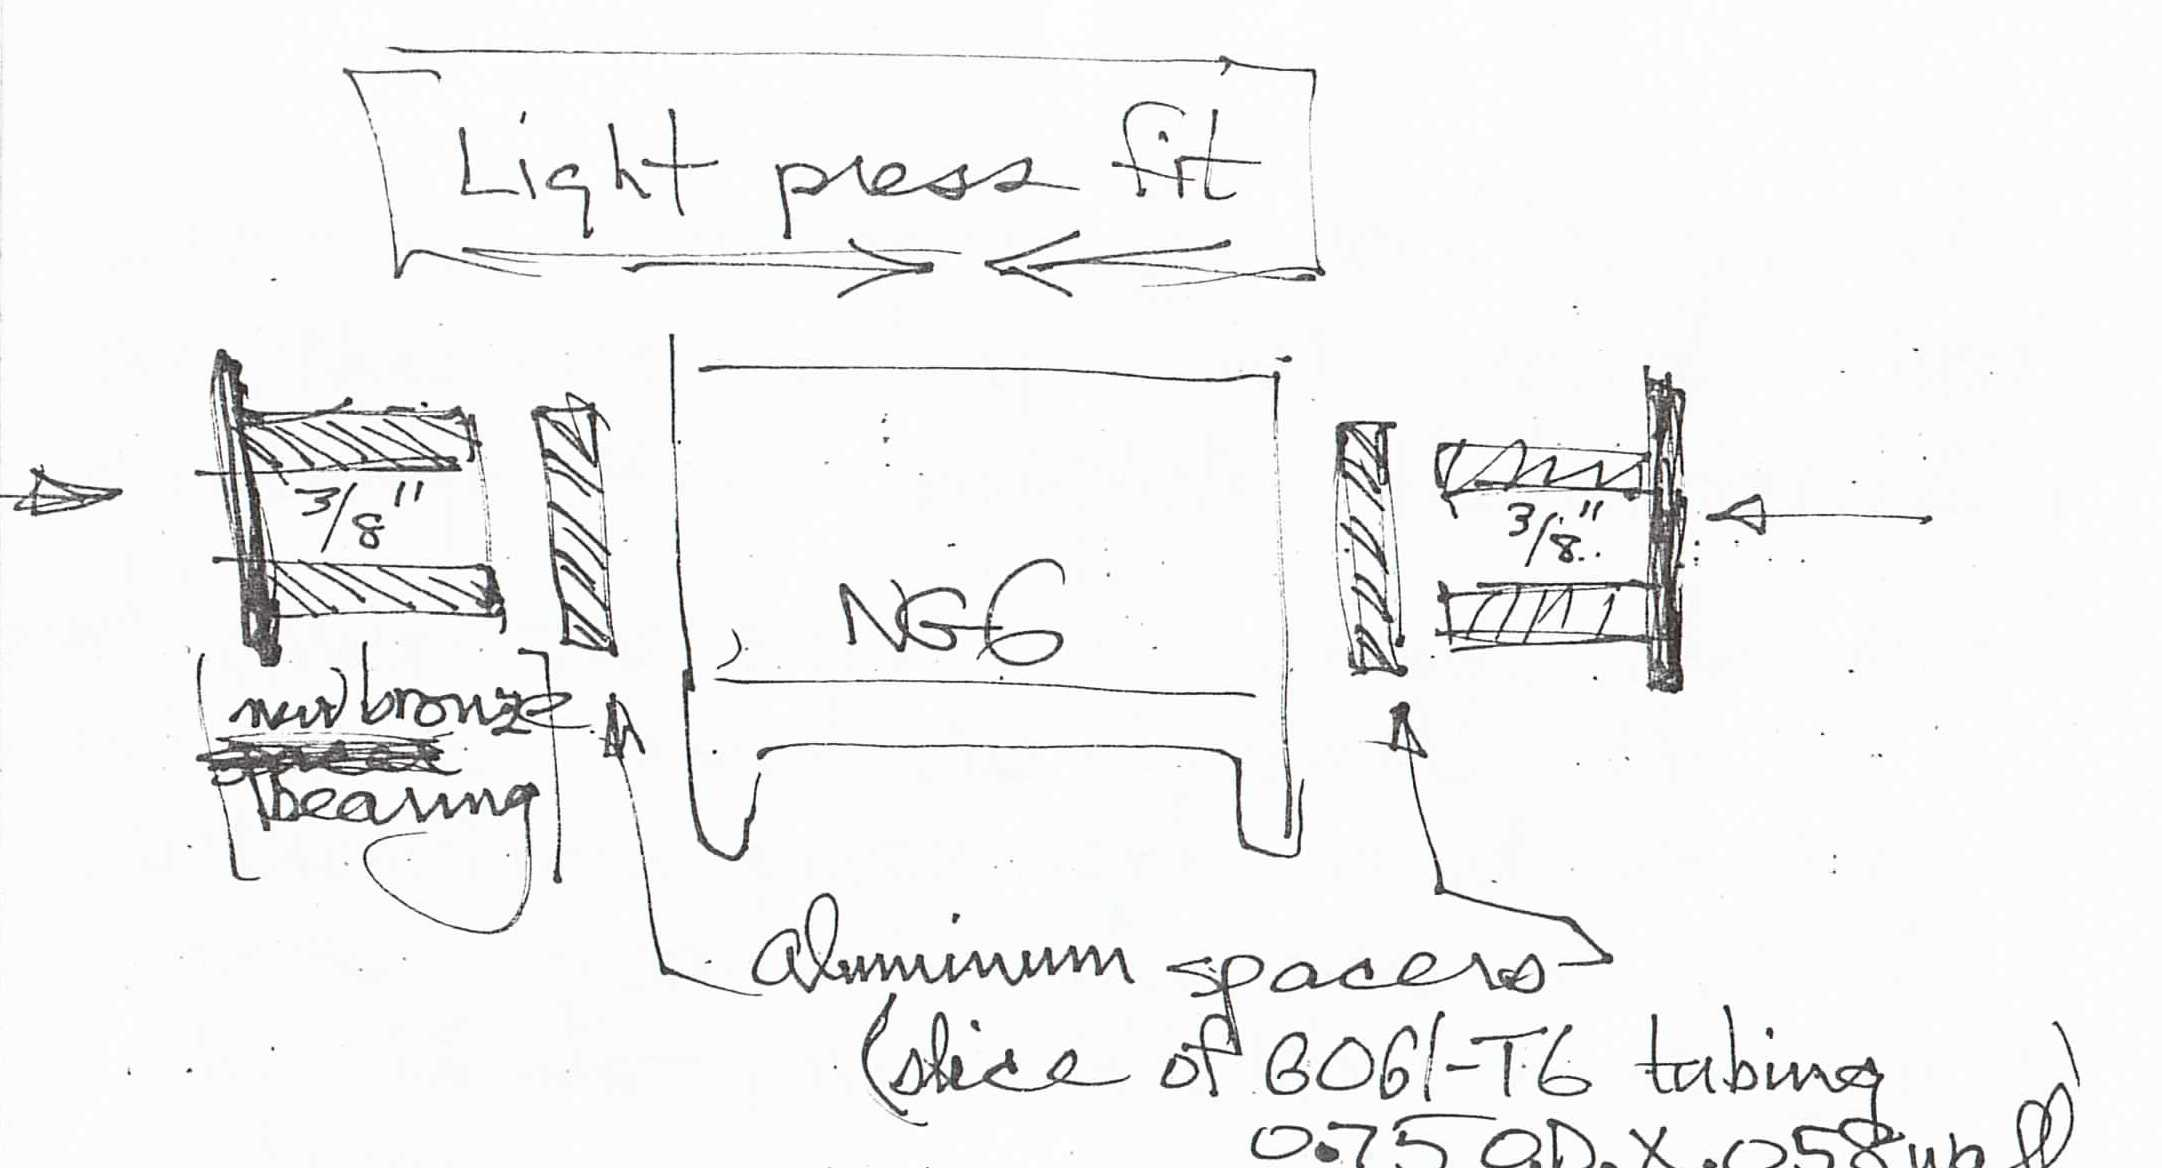 Light press fit
3/8"
3/8"
NG-6
new bronze
bearing
aluminum spacers
(slice of 6061-T6 tubing
0.75 O.D. X .058 wall)